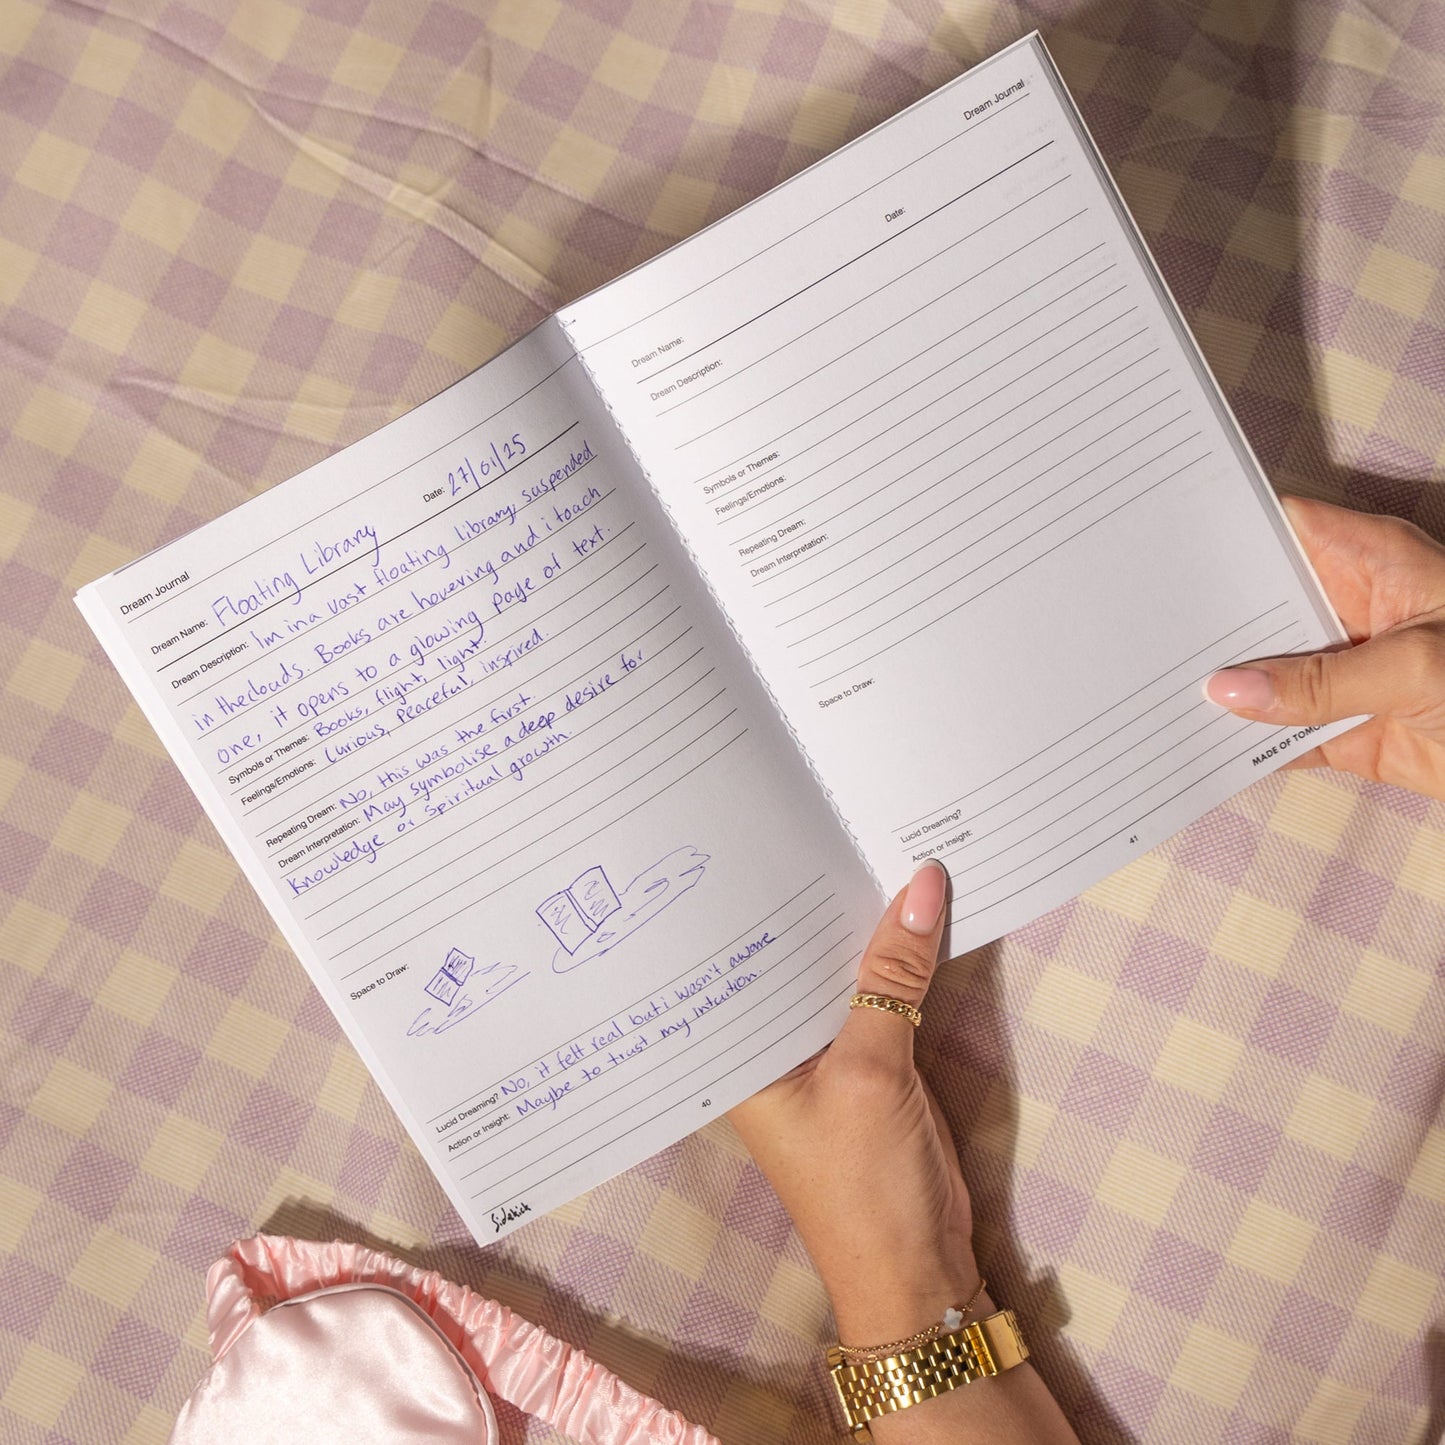 Dream Journal
Date: 27/01/25
Dream Name: Floating Library
Dream Description: Im in a vast floating library, suspended
in theclouds. Books are hovering and i touch
one, it opens to a glowing page of text.
Symbols or Themes: Books, flight, light.
Feelings/Emotions: Curious, peaceful, inspired.
Repeating Dream: No, this was the first.
Dream Interpretation: May symbolise a deep desire for
knowledge or spiritual growth.
Space to Draw:
Lucid Dreaming? No, it felt real but i wasn't aware
Action or Insight: Maybe to trust my intuition.
40
Sidekick
Dream Journal
Date:
Dream Name:
Dream Description:
Symbols or Themes:
Feelings/Emotions:
Repeating Dream:
Dream Interpretation:
Space to Draw:
Lucid Dreaming?
Action or Insight:
41
MADE OF